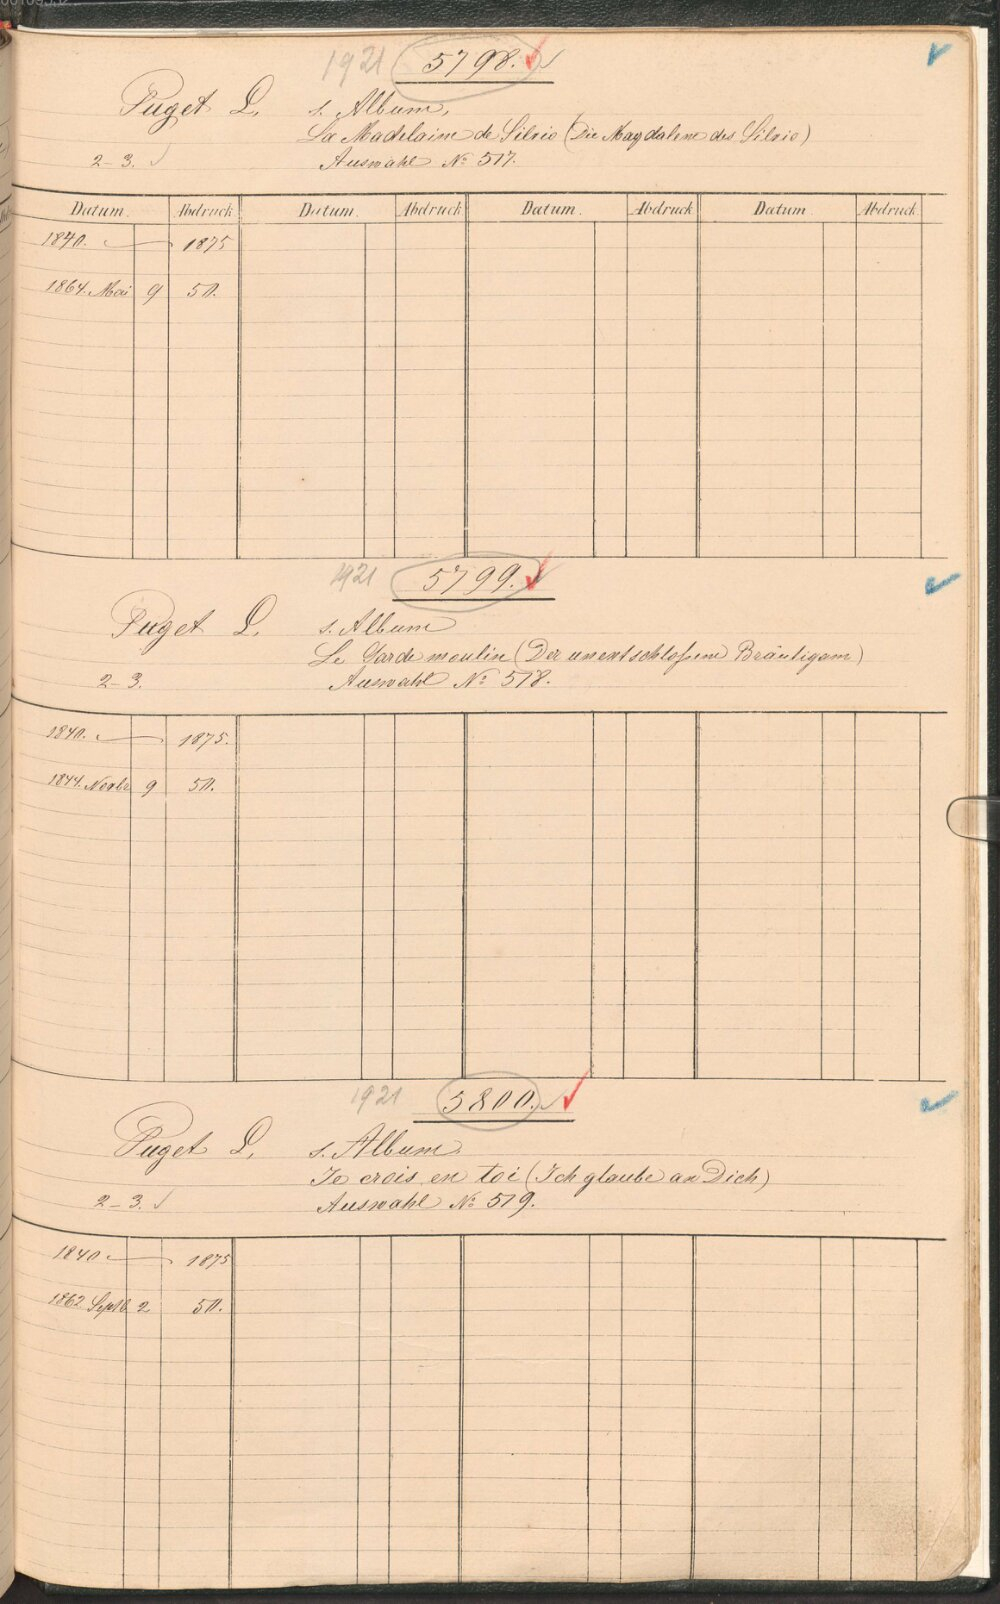 1921 5798.
Puget L. s. Album.
La Madelaine de Silvio (Die Magdalene des Silvio)
2-3. Auswahl No 517.
Datum. Abdruck Datum. Abdruck Datum. Abdruck Datum. Abdruck
1840. 1875
1864. Mai 9 50.
1921 5799.
Puget L. s. Album
Le Garde moulin (Der unentschloßene Bräutigam)
2-3. Auswahl No 518.
1840. 1875.
1844. Novbr 9 50.
1921 5800.
Puget L. s. Album
Je crois en toi (Ich glaube an Dich)
2-3. Auswahl No 519.
1840 1875
1862 Septb 2 50.